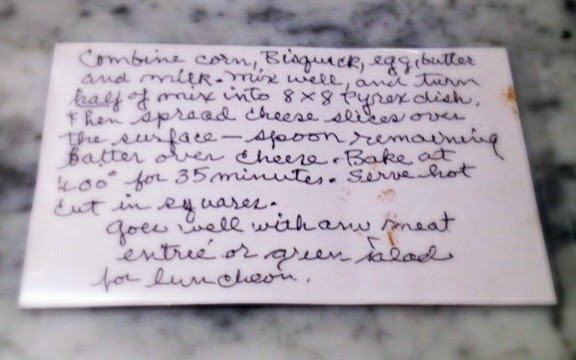 Combine corn, Bisquick, egg, butter
and milk. Mix well, and turn
half of mix into 8x8 Pyrex dish.
Then spread cheese slices over
the surface — spoon remaining
batter over cheese. Bake at
400° for 35 minutes. Serve hot
cut in squares.
Goes well with any meat
entrée or green salad
for luncheon.